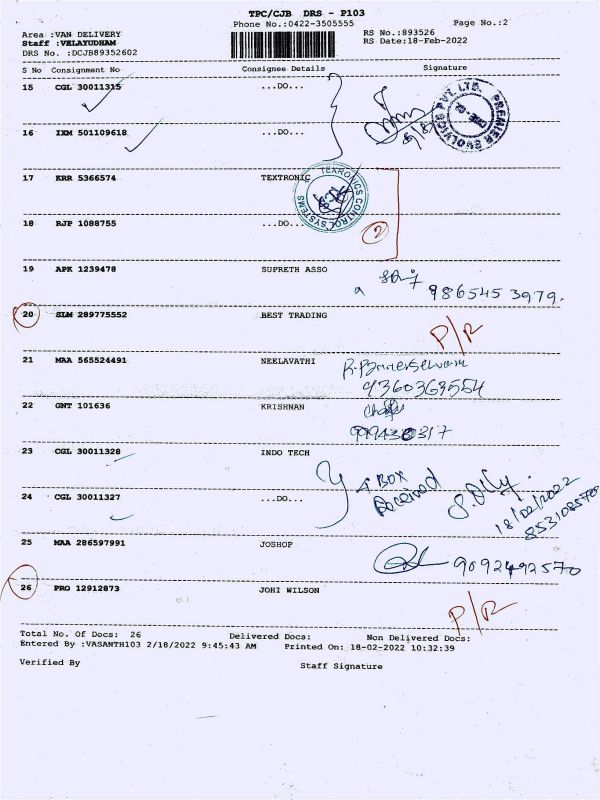 TPC/CJB DRS - P103
Phone No.:0422-3505555
Page No.:2
Area :VAN DELIVERY
RS No.:893526
Staff :VELAYUDHAM
RS Date:18-Feb-2022
DRS No. :DCJB89352602
S No Consignment No Consignee Details Signature
15 CGL 30011315 ...DO...
PREMIER EVOLVICS PVT. LTD.
16 IXM 501109618 ...DO...
17 KRR 5366574 TEXTRONIC
TEXTRONICS CONTROL SYSTEMS
18 RJP 1088755 ...DO...
2
19 APK 1239478 SUPRETH ASSO
9865453979.
20 SLM 289775552 BEST TRADING
P/R
21 MAA 565524491 NEELAVATHI
9360369554
22 GMT 101636 KRISHNAN
23 CGL 30011328 INDO TECH
4 Box
Received
18/02/2022
24 CGL 30011327 ...DO...
25 MAA 286597991 JOSHOP
9092492570
26 PRO 12912873 JOHI WILSON
P/R
Total No. Of Docs: 26 Delivered Docs: Non Delivered Docs:
Entered By :VASANTH103 2/18/2022 9:45:43 AM Printed On: 18-02-2022 10:32:39
Verified By Staff Signature